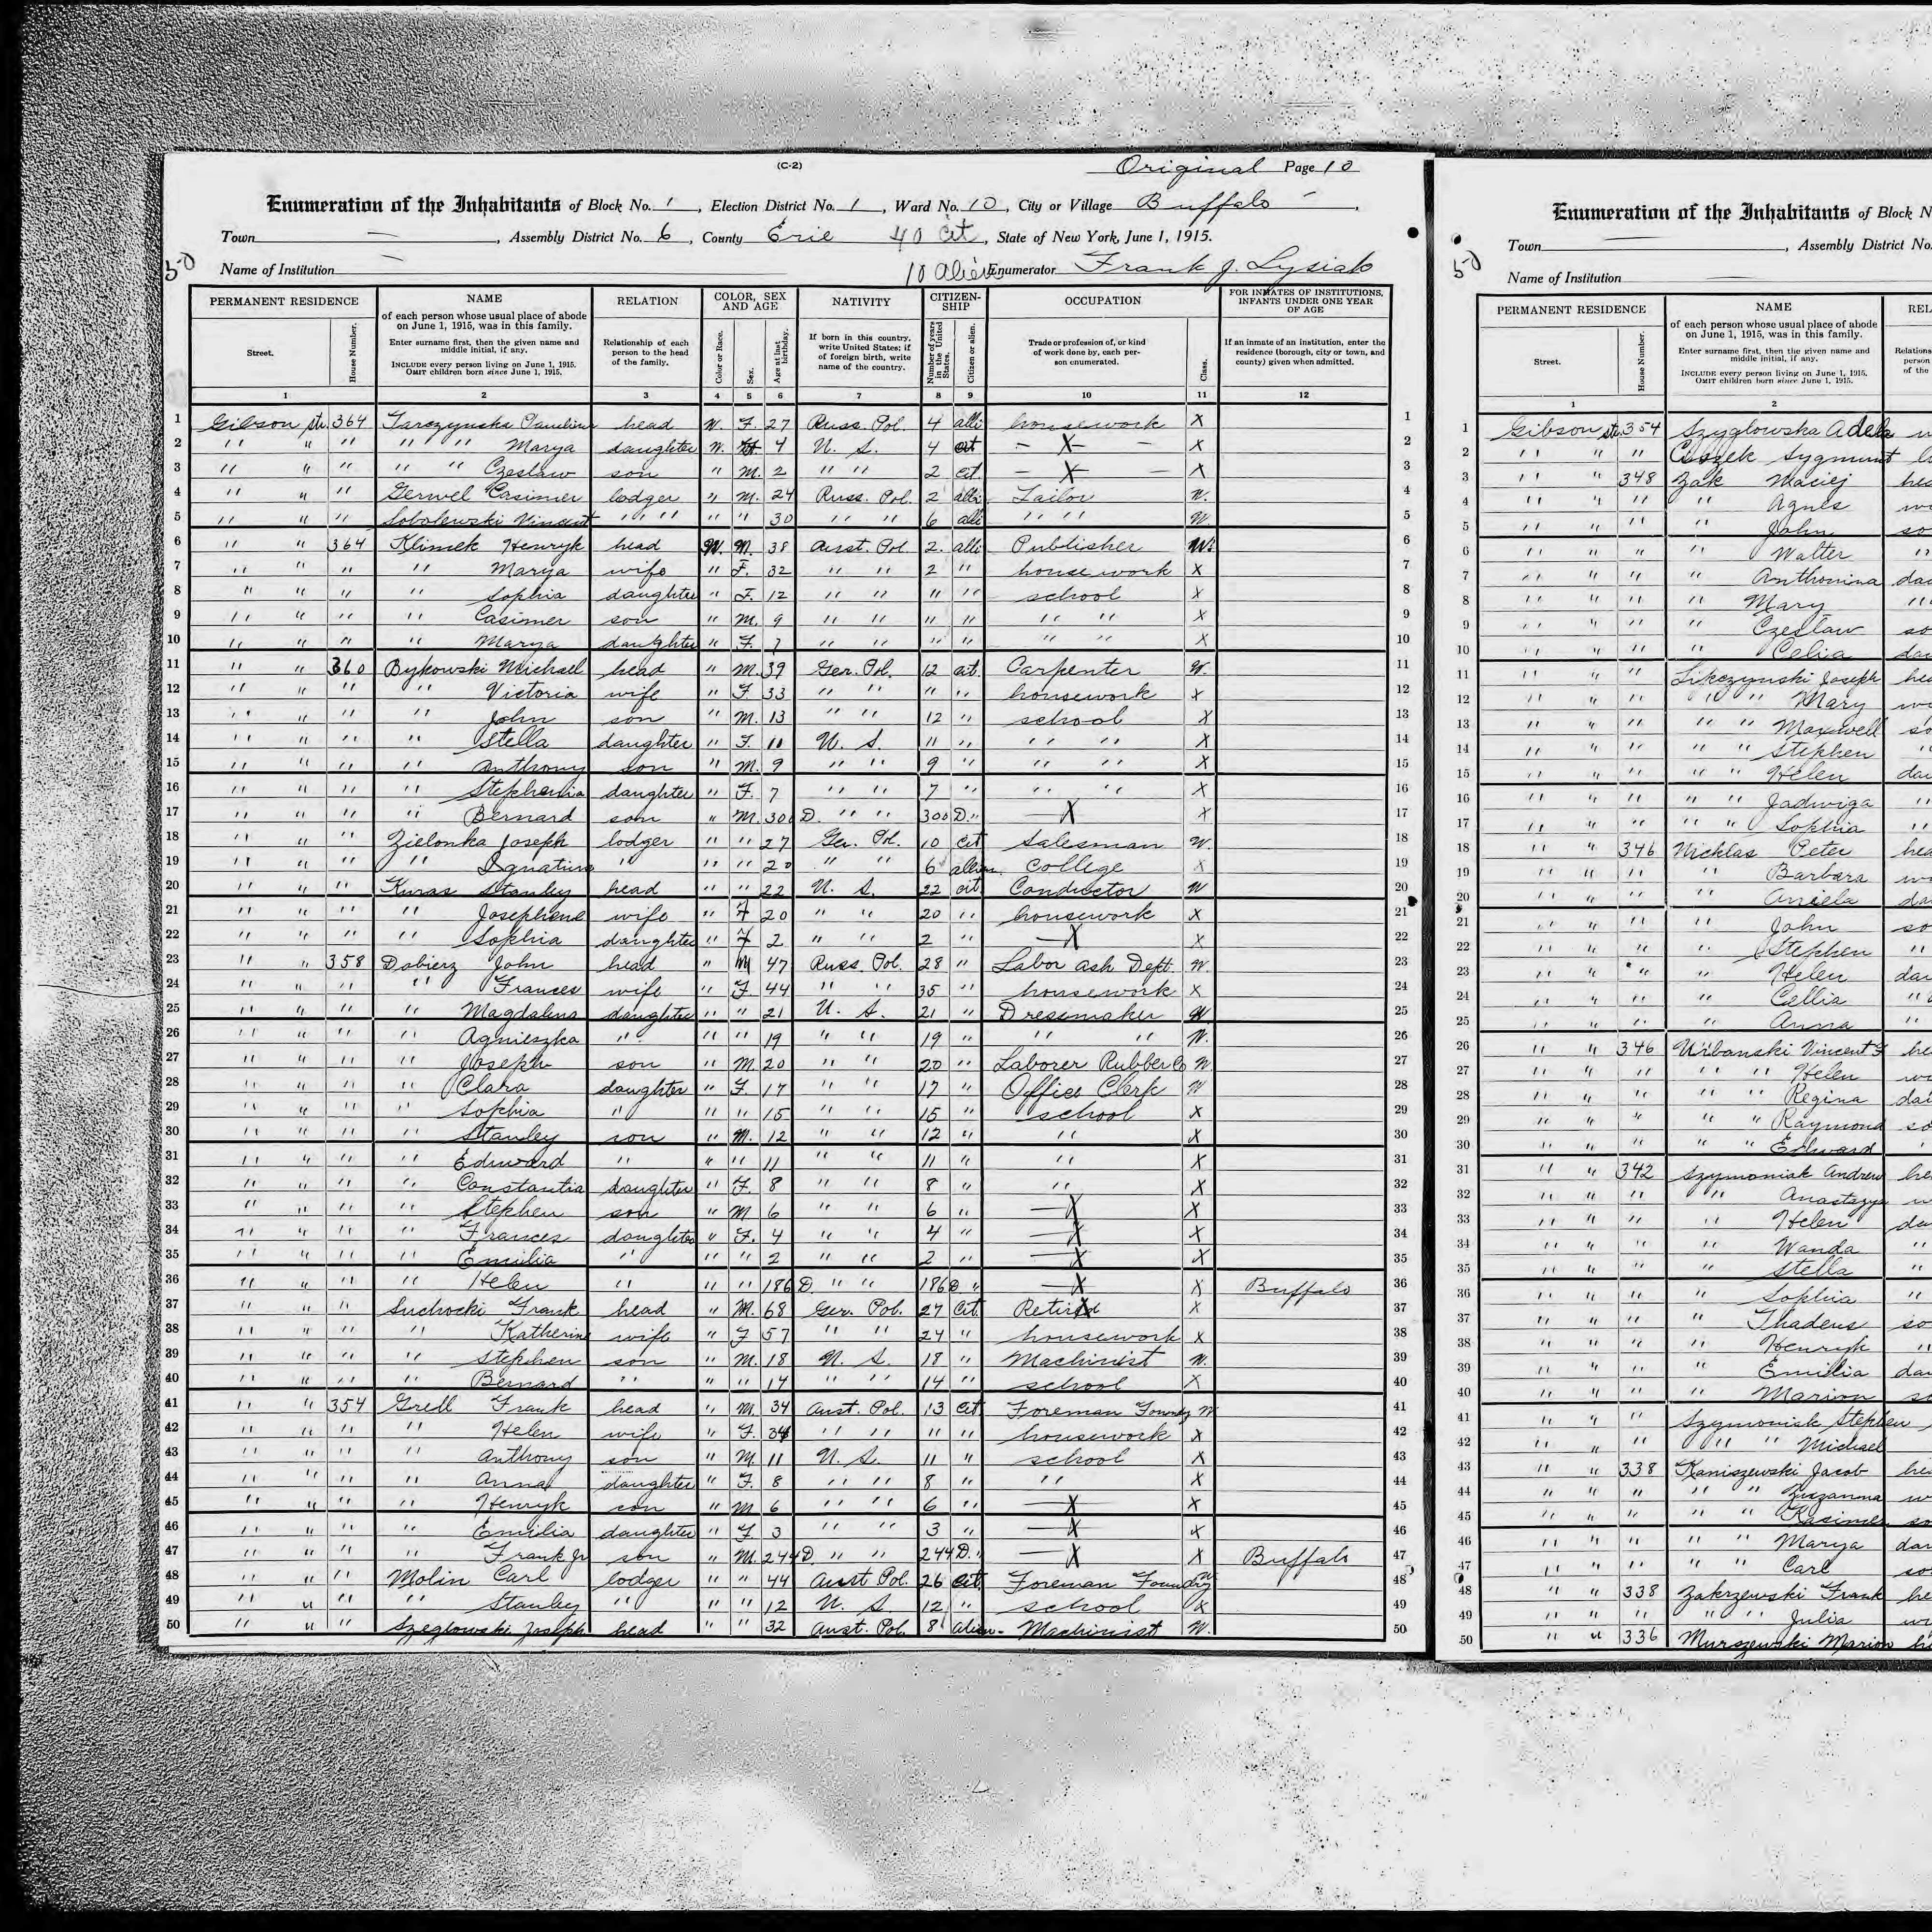 (C-2) Original Page 10
Enumeration of the Inhabitants of Block No. 1, Election District No. 1, Ward No. 10, City or Village Buffalo
Town —, Assembly District No. 6, County Erie 40 cit, State of New York, June 1, 1915.
50 Name of Institution — 10 alien Enumerator Frank J. Lysiak
PERMANENT RESIDENCE NAME RELATION COLOR, SEX AND AGE NATIVITY CITIZENSHIP OCCUPATION FOR INMATES OF INSTITUTIONS, INFANTS UNDER ONE YEAR OF AGE
Street. House Number. of each person whose usual place of abode on June 1, 1915, was in this family. Enter surname first, then the given name and middle initial, if any. INCLUDE every person living on June 1, 1915. OMIT children born since June 1, 1915. Relationship of each person to the head of the family. Color or Race. Sex. Age at last birthday. If born in this country, write United States; if of foreign birth, write name of the country. Number of years in the United States. Citizen or alien. Trade or profession of, or kind of work done by, each person enumerated. Class. If an inmate of an institution, enter the residence (borough, city or town, and county) given when admitted.
1 2 3 4 5 6 7 8 9 10 11 12
1 Gibson str. 364 Tarczynska Pauline head W. F. 27 Russ. Pol. 4 alli housework X 1
2 " " " " " Marya daughter W. 4 U. S. 4 cit — X — X 2
3 " " " " " Czeslaw son " M. 2 " " 2 cit. — X — X 3
4 " " " Gerwel Casimer lodger " M. 24 Russ. Pol. 2 alli Tailor W. 4
5 " " " Sobolewski Vincent " " " " 30 " " 6 alli " " W. 5
6 " " 364 Klimek Henryk head W. M. 38 Aust. Pol. 2. alli Publisher W. 6
7 " " " " Marya wife " F. 32 " " 2 " house work X 7
8 " " " " Sophia daughter " F. 12 " " " " school X 8
9 " " " " Casimer son " M. 9 " " " " " " X 9
10 " " " " Marya daughter " F 7 " " " " " " X 10
11 " " 360 Bykowski Michael head " M. 39 Ger. Pol. 12 cit. Carpenter W. 11
12 " " " " Victoria wife " F 33 " " " " housework X 12
13 " " " " John son " M. 13 " " 12 " school X 13
14 " " " " Stella daughter " F. 11 U. S. 11 " " " X 14
15 " " " " Anthony son " M. 9 " " 9 " " " X 15
16 " " " " Stephenia daughter " F. 7 " " 7 " " " X 16
17 " " " " Bernard son " M. 300 D. " " 300 D. " — X X 17
18 " " " Zielonka Joseph lodger " " 27 Ger. Pol. 10 cit Salesman W. 18
19 " " " " Ignatius " " " 20 " " 6 allien. College X 19
20 " " " Kuras Stanley head " " 22 U. S. 22 cit. Conductor W 20
21 " " " " Josephene wife " F 20 " " 20 " housework X 21
22 " " " " Sophia daughter " F 2 " " 2 " — X X 22
23 " " 358 Dobierz John head " M 47 Russ. Pol. 28 " Labor ash Dept. W. 23
24 " " " " Frances wife " F. 44 " " 35 " housework X 24
25 " " " " Magdalena daughter " " 21 U. S. 21 " Dressmaker W 25
26 " " " " Agnieszka " " " 19 " " 19 " " " W. 26
27 " " " " Joseph son " M. 20 " " 20 " Laborer Rubber Co W 27
28 " " " " Clara daughter " F. 17 " " 17 " Office Clerk W 28
29 " " " " Sophia " " " 15 " " 15 " school X 29
30 " " " " Stanley son " M. 12 " " 12 " " X 30
31 " " " " Edward " " " 11 " " 11 " " X 31
32 " " " " Constantia daughter " F. 8 " " 8 " " X 32
33 " " " " Stephen son " M 6 " " 6 " — X X 33
34 " " " " Frances daughter " F. 4 " " 4 " — X X 34
35 " " " " Emilia " " " 2 " " 2 " — X X 35
36 " " " " Helen " " " 186 D. " " 186 D " — X X Buffalo 36
37 " " " Suchocki Frank head " M. 68 Ger. Pol. 27 Cit. Retired X 37
38 " " " " Katherine wife " F 57 " " 24 " housework X 38
39 " " " " Stephen son " M. 18 U. S. 18 " Machinist W. 39
40 " " " " Bernard " " " 14 " " 14 " school X 40
41 " " 354 Grell Frank head " M. 34 Aust. Pol. 13 cit Foreman Foundry W 41
42 " " " " Helen wife " F. 34 " " " " housework X 42
43 " " " " Anthony son " M. 11 U. S. 11 " school X 43
44 " " " " Anna daughter " F. 8 " " 8 " " " X 44
45 " " " " Henryk son " M 6 " " 6 " — X X 45
46 " " " " Emilia daughter " F 3 " " 3 " — X X 46
47 " " " " Frank Jr son " M. 244 D. " " 244 D. " — X X Buffalo 47
48 " " " Molin Carl lodger " " 44 Aust Pol. 26 cit. Foreman Foundry W 48
49 " " " " Stanley " " " 12 U. S. 12 " school X 49
50 " " " Szeglowski Joseph head " " 32 Aust. Pol. 8 alien - Machinist W. 50
Enumeration of the Inhabitants of Block N
Town —, Assembly District No.
50 Name of Institution —
PERMANENT RESIDENCE NAME REL
Street. House Number. of each person whose usual place of abode on June 1, 1915, was in this family. Enter surname first, then the given name and middle initial, if any. INCLUDE every person living on June 1, 1915. OMIT children born since June 1, 1915. Relations person of the
1 2
1 Gibson str. 354 Szyglowska Adela w
2 " " " Sygmunt lo
3 " " 348 Zak Maciej hea
4 " " " " Agnes wi
5 " " " " John so
6 " " " " Walter "
7 " " " " Anthonina dau
8 " " " " Mary "
9 " " " " Czeslaw so
10 " " " " Celia dau
11 " " " Lipczynski Joseph hea
12 " " " " " Mary wi
13 " " " " " Maxwell so
14 " " " " " Stephen "
15 " " " " " Helen dau
16 " " " " " Jadwiga "
17 " " " " " Sophia "
18 " " 346 Nicklas Peter hea
19 " " " " Barbara wi
20 " " " " Aniela dau
21 " " " " John so
22 " " " " Stephen "
23 " " " " Helen dau
24 " " " " Cellia "
25 " " " " Anna "
26 " " 346 Urbanski Vincent F he
27 " " " " " Helen wi
28 " " " " " Regina dau
29 " " " " " Raymond so
30 " " " " " Edward "
31 " " 342 Szymoniak Andrew hea
32 " " " " Anastazya w
33 " " " " Helen da
34 " " " " Wanda "
35 " " " " Stella "
36 " " " " Sophia "
37 " " " " Thadeus so
38 " " " " Henryk "
39 " " " " Emilia dau
40 " " " " Marion so
41 " " " Szymoniak Stephen
42 " " " " " " Michael
43 " " 338 Kaniszewski Jacob hea
44 " " " " " Zuzanna w
45 " " " " " Kasimer so
46 " " " " " Marya dau
47 " " " " " Carl so
48 " " 338 Zakrzewski Frank he
49 " " " " " Julia wi
50 " " 336 Murszewski Marion he